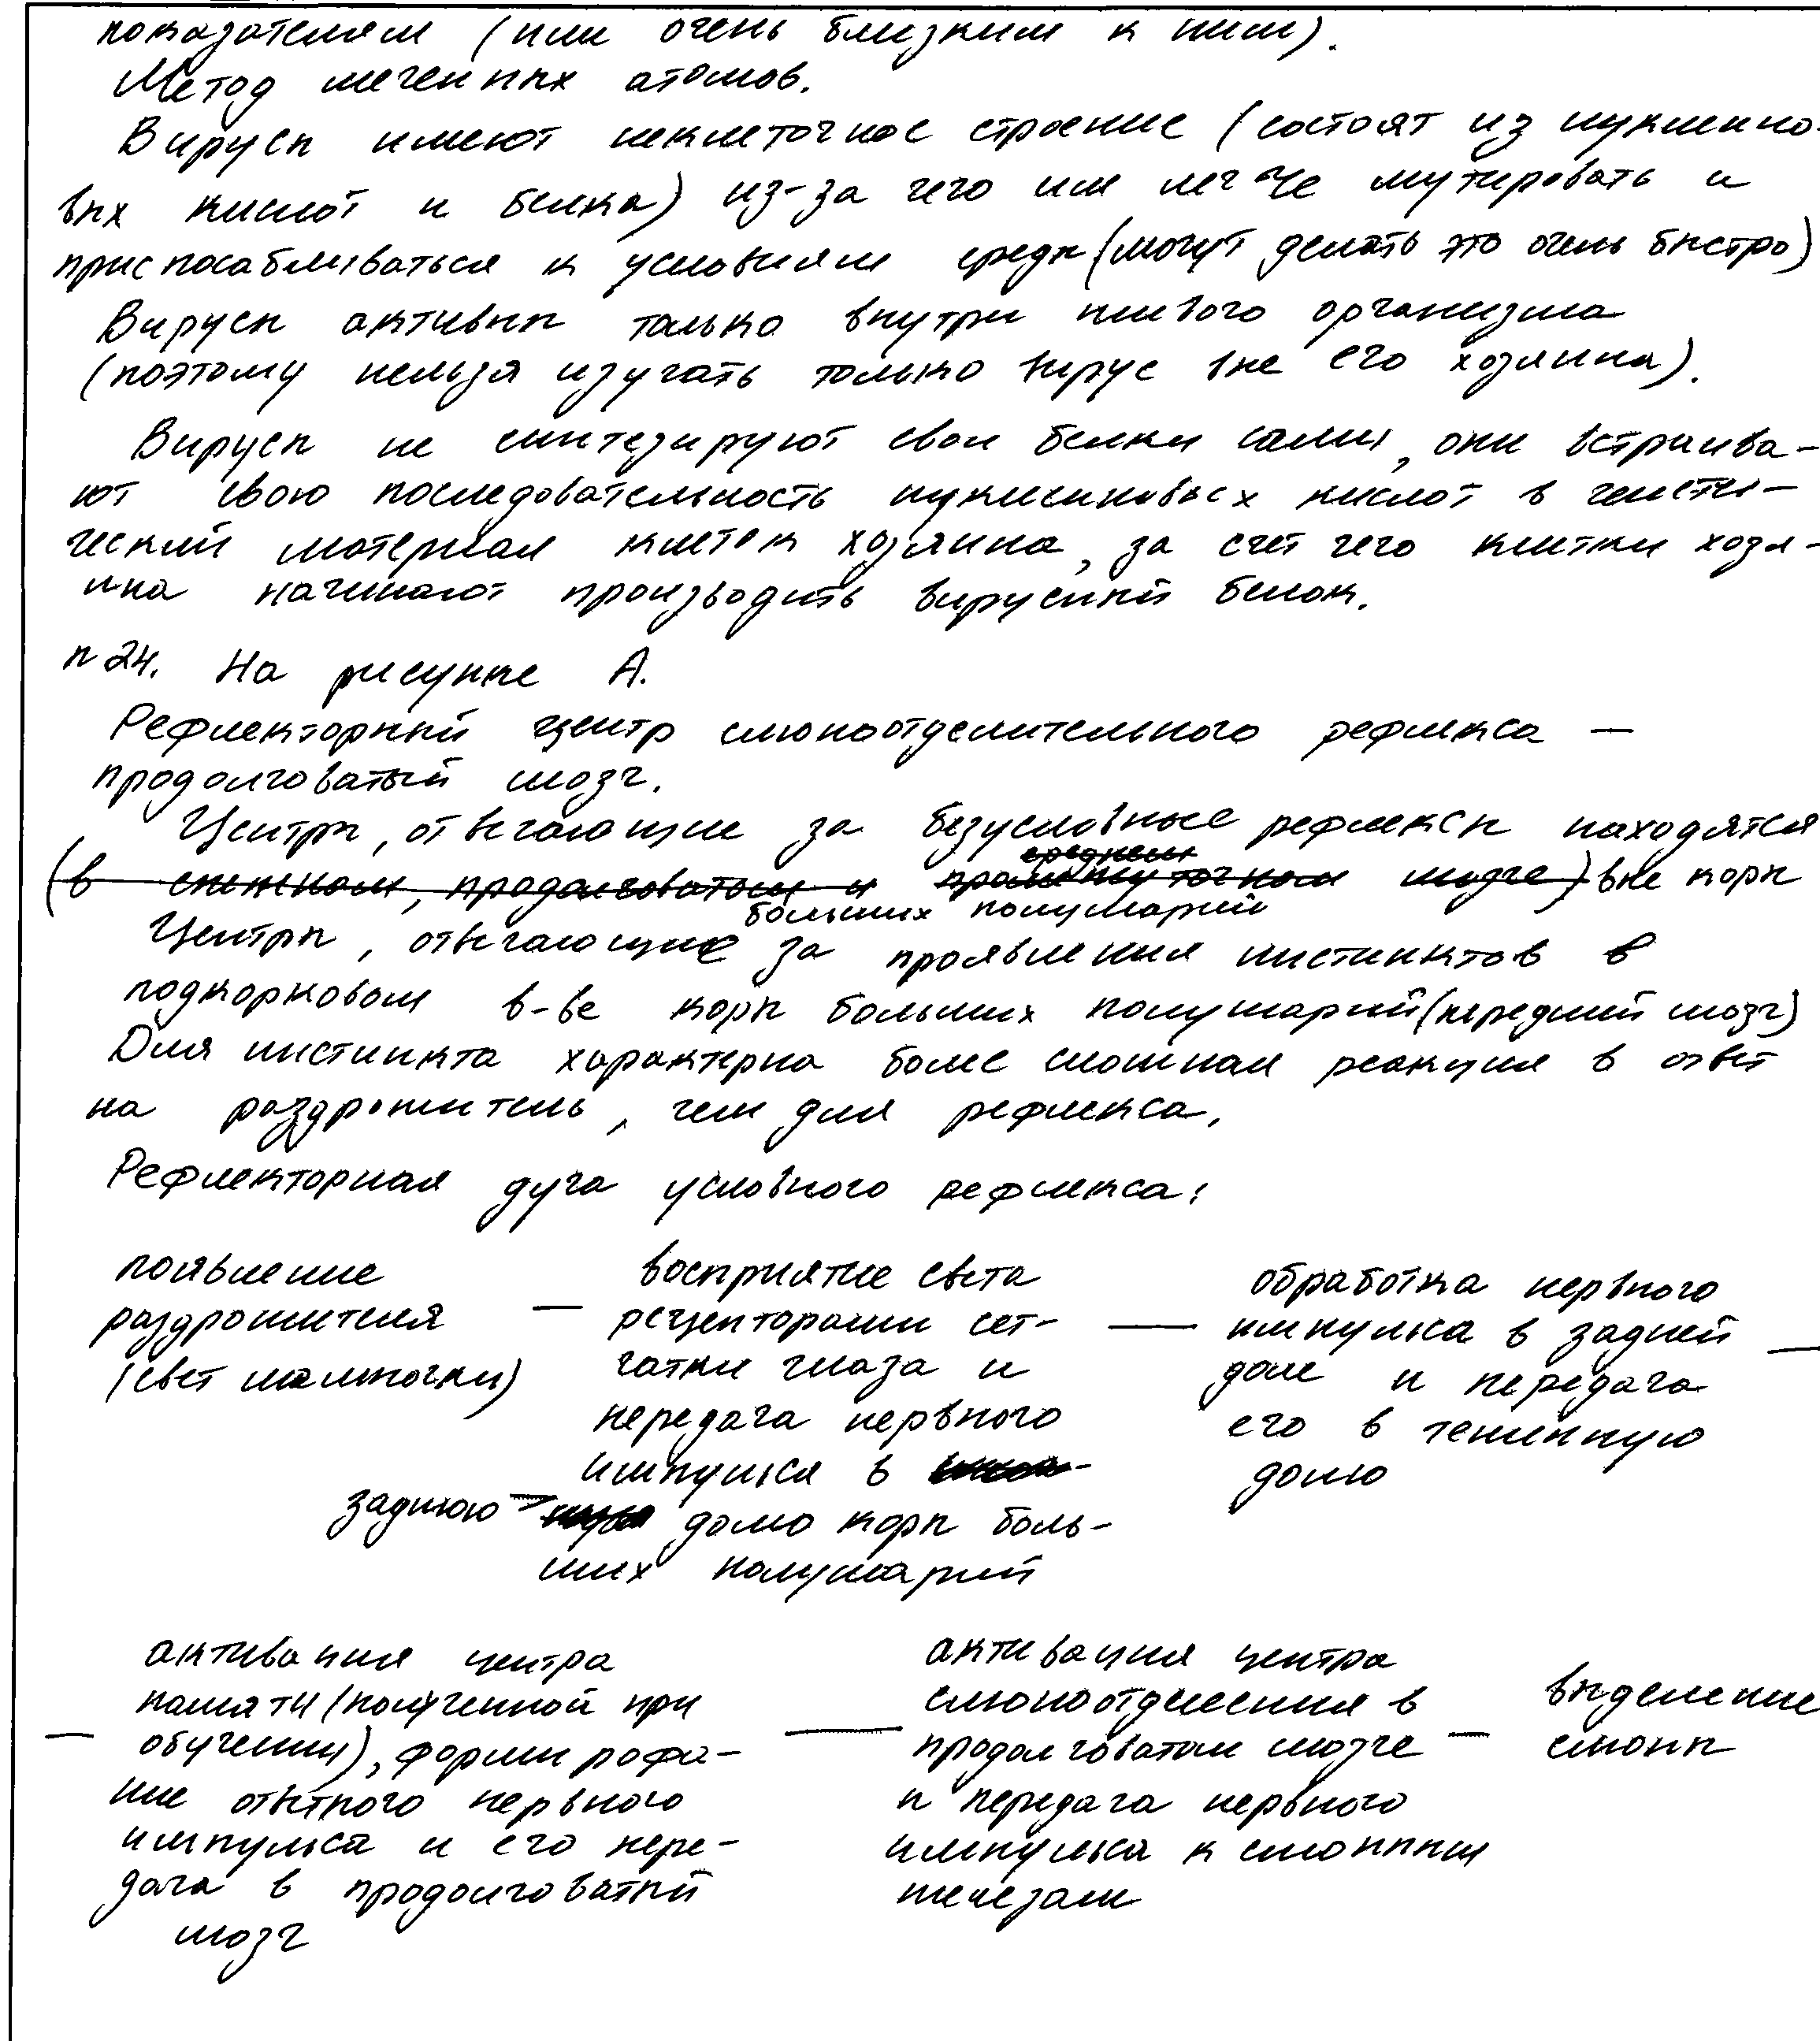 показателям (или очень близким к ним).
Метод меченных атомов.
Вирусы имеют неклеточное строение (состоят из нуклеино-
вых кислот и белка) из-за чего им легче мутировать и
приспосабливаться к условиям среды (могут делать это очень быстро)
Вирусы активны только внутри живого организма
(поэтому нельзя изучать только вирус вне его хозяина).
Вирусы не синтезируют свои белки сами, они встраива-
ют свою последовательность нуклеиновых кислот в генети-
ческий материал клеток хозяина, за счет чего клетки хозя-
ина начинают производить вирусный белок.
п 24. На рисунке А.
Рефлекторный центр слюноотделительного рефлекса —
продолговатый мозг.
Центры, отвечающие за безусловные рефлексы находятся
среднем
(в спинном, продолговатом и промежуточном мозге) вне коры
больших полушарий
Центры, отвечающие за проявления инстинктов в
подкорковом в-ве коры больших полушарий (передний мозг)
Для инстинкта характерна более сложная реакция в ответ
на раздражитель, чем для рефлекса.
Рефлекторная дуга условного рефлекса:
появление
раздражителя
(свет лампочки)
— восприятие света
рецепторами сет-
чатки глаза и
передача нервного
импульса в
заднюю долю коры боль-
ших полушарий
— обработка нервного
импульса в задней —
доле и передача
его в теменную
долю
активация центра
памяти (полученной при
— обучении), формирофа-
ние ответного нервного
импульса и его пере-
дача в продолговатый
мозг
активация центра
слюноотделения в
— продолговатом мозге
и передача нервного
импульса к слюнным
железам
— выделение
слюны